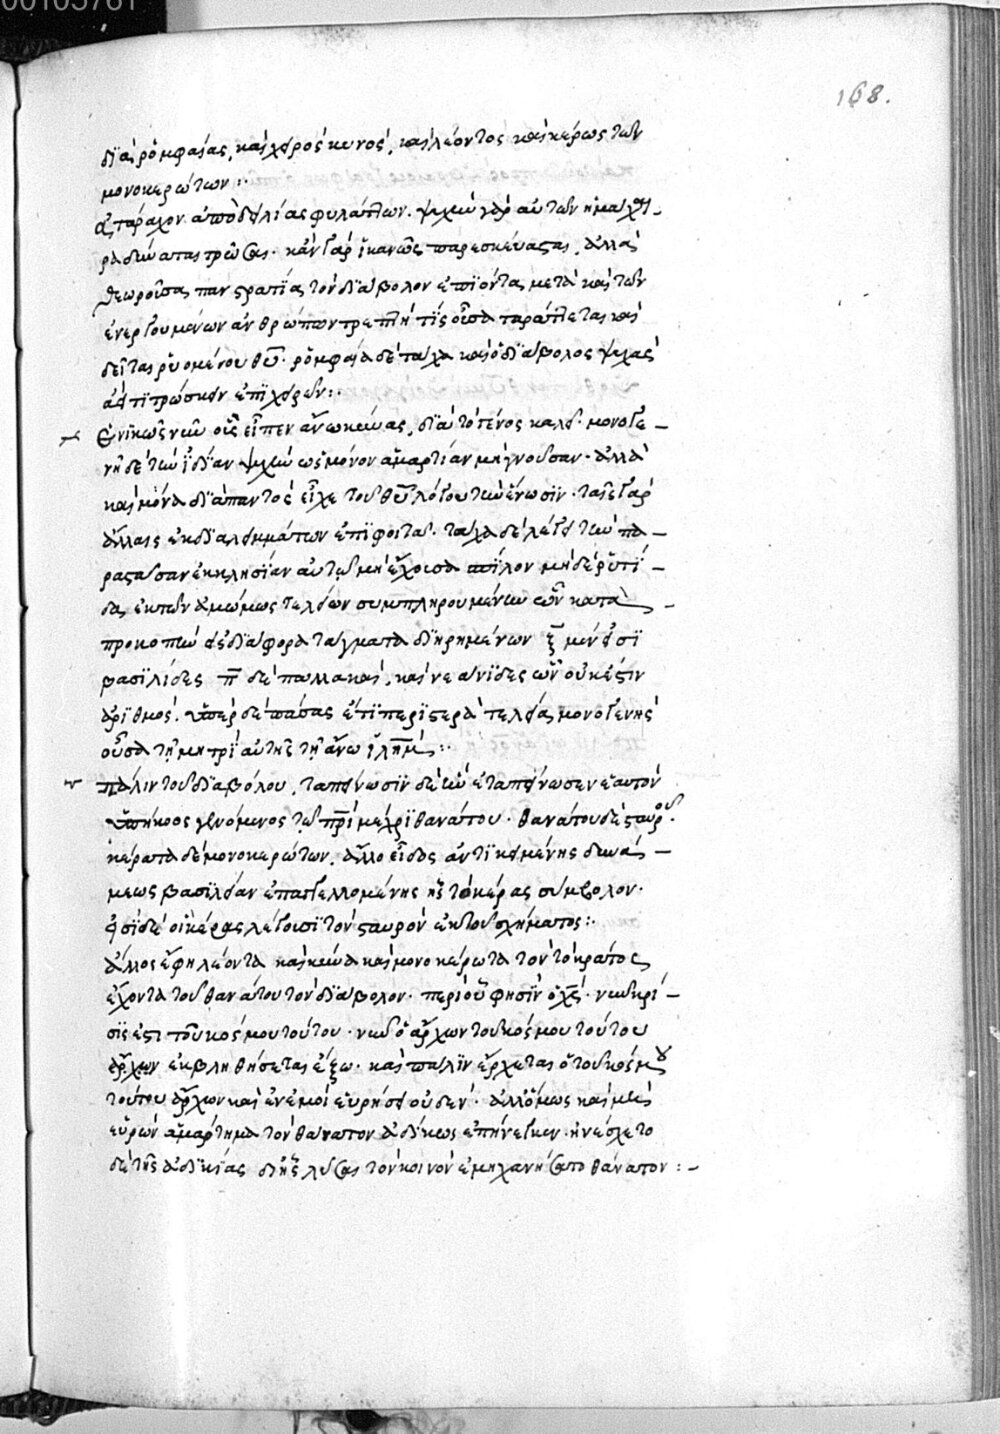 00105761
168.
διὰ ῥομφαίας, καὶ χειρὸς κυνὸς, καὶ λέοντος καὶ κέρως τῶν
μονοκερώτων :·
ἀτάραχον ἀπὸ δειλίας φυλάττων. ψυχὴν γὰρ αὐτῶν ἡ μάχαι
ρα δεινῶς
κἂν γὰρ ἱκανῶς παρεσκεύασται, ἀλλὰ
θεωροῦσα πανστρατιᾷ τὸν διάβολον ἐπϊόντα μετὰ καὶ τῶν
ἐνεργουμένων ἀνθρώπων τρεπτή τις οὖσα ταράττεται καὶ
δεῖται ῥυομένου θῦ. ῥομφαία δὲ τάχα καὶ ὁ διάβολος ψυχὰς
ἀεὶ τιτρώσκειν ἐπιχειρῶν :·
Ἑνικῶς νῦν οὓς εἶπεν ἄνω κύνας, διὰ τὸ γένος καλεῖ. μονογε
νῆ δὲ τὴν ἰδίαν ψυχὴν ὡς μόνον ἁμαρτίαν μὴ γνοῦσαν. ἀλλὰ
καὶ μόνα διαπαντὸς εἶχε τοῦ θῦ λόγου τὴν ἕνωσιν. ταῖς γὰρ
ἄλλαις ἐκ διαλειμμάτων ἐπιφοιτᾷ. τάχα δὲ λέγει τὴν πα
ραστᾶσαν ἐκκλησίαν αὐτῷ μὴ ἔχουσα σπίλον μηδὲ ῥυτί
δα, ἐκ τῶν ἀμώμως τελείων συμπληρουμένην ὧν κατὰ
προκοπὴν εἰς διάφορα τάγματα διῃρημένων ξ μέν εἰσϊ
βασιλίδες π δὲ παλλακαὶ, καὶ νεάνιδες ὧν οὐκ ἔστιν
ἀριθμός. ὑπὲρ δὲ πάσας ἐστὶ περιστερὰ τελεία, μονογενὴς
οὖσα τῇ μητρὶ αὐτῆς τῇ ἄνω ἱλημ :·
πάλιν τοῦ διαβόλου, ταπείνωσιν δὲ ἣν ἐταπείνωσεν ἑαυτὸν
ὑπήκοος γενόμενος τῷ πρι μέχρι θανάτου. θανάτου δὲ σταυροῦ.
κέρατα δὲ μονοκερώτων. ἄλλο εἶδος ἀντικειμένης δυνά
μεως βασιλείαν ἐπαγγελλομένης ἧς τὸ κέρας σύμβολον.
εἰσὶ δὲ οἳ κέρας λέγουσι τὸν σταυρὸν ἐκ τοῦ σχήματος :·
ἄλλος ἔφη λέοντα καὶ κύνα καὶ μονοκέρωτα τὸν τὸ κράτος
ἔχοντα τοῦ θανάτου τὸν διάβολον. περὶ οὗ φησὶν ὁ χς. νῦν κρί
σις ἐστι τοῦ κόσμου τούτου. νῦν ὁ ἄρχων τοῦ κόσμου τούτου
ἄρχων ἐκβληθήσεται ἔξω. καὶ πάλιν ἔρχεται ὁ τοῦ κόσμου
τούτου ἄρχων καὶ ἐν ἐμοὶ εὑρήσει οὐδέν. ἀλλ' ὅμως καὶ μὴ
εὑρὼν ἁμάρτημα τὸν θάνατον ἀδίκως ἐπήνεγκεν. ἠνέσχετο
δὲ τῆς ἀδικίας
λῦσαι τὸν κοινὸν ἐμηχανήσατο θάνατον :-